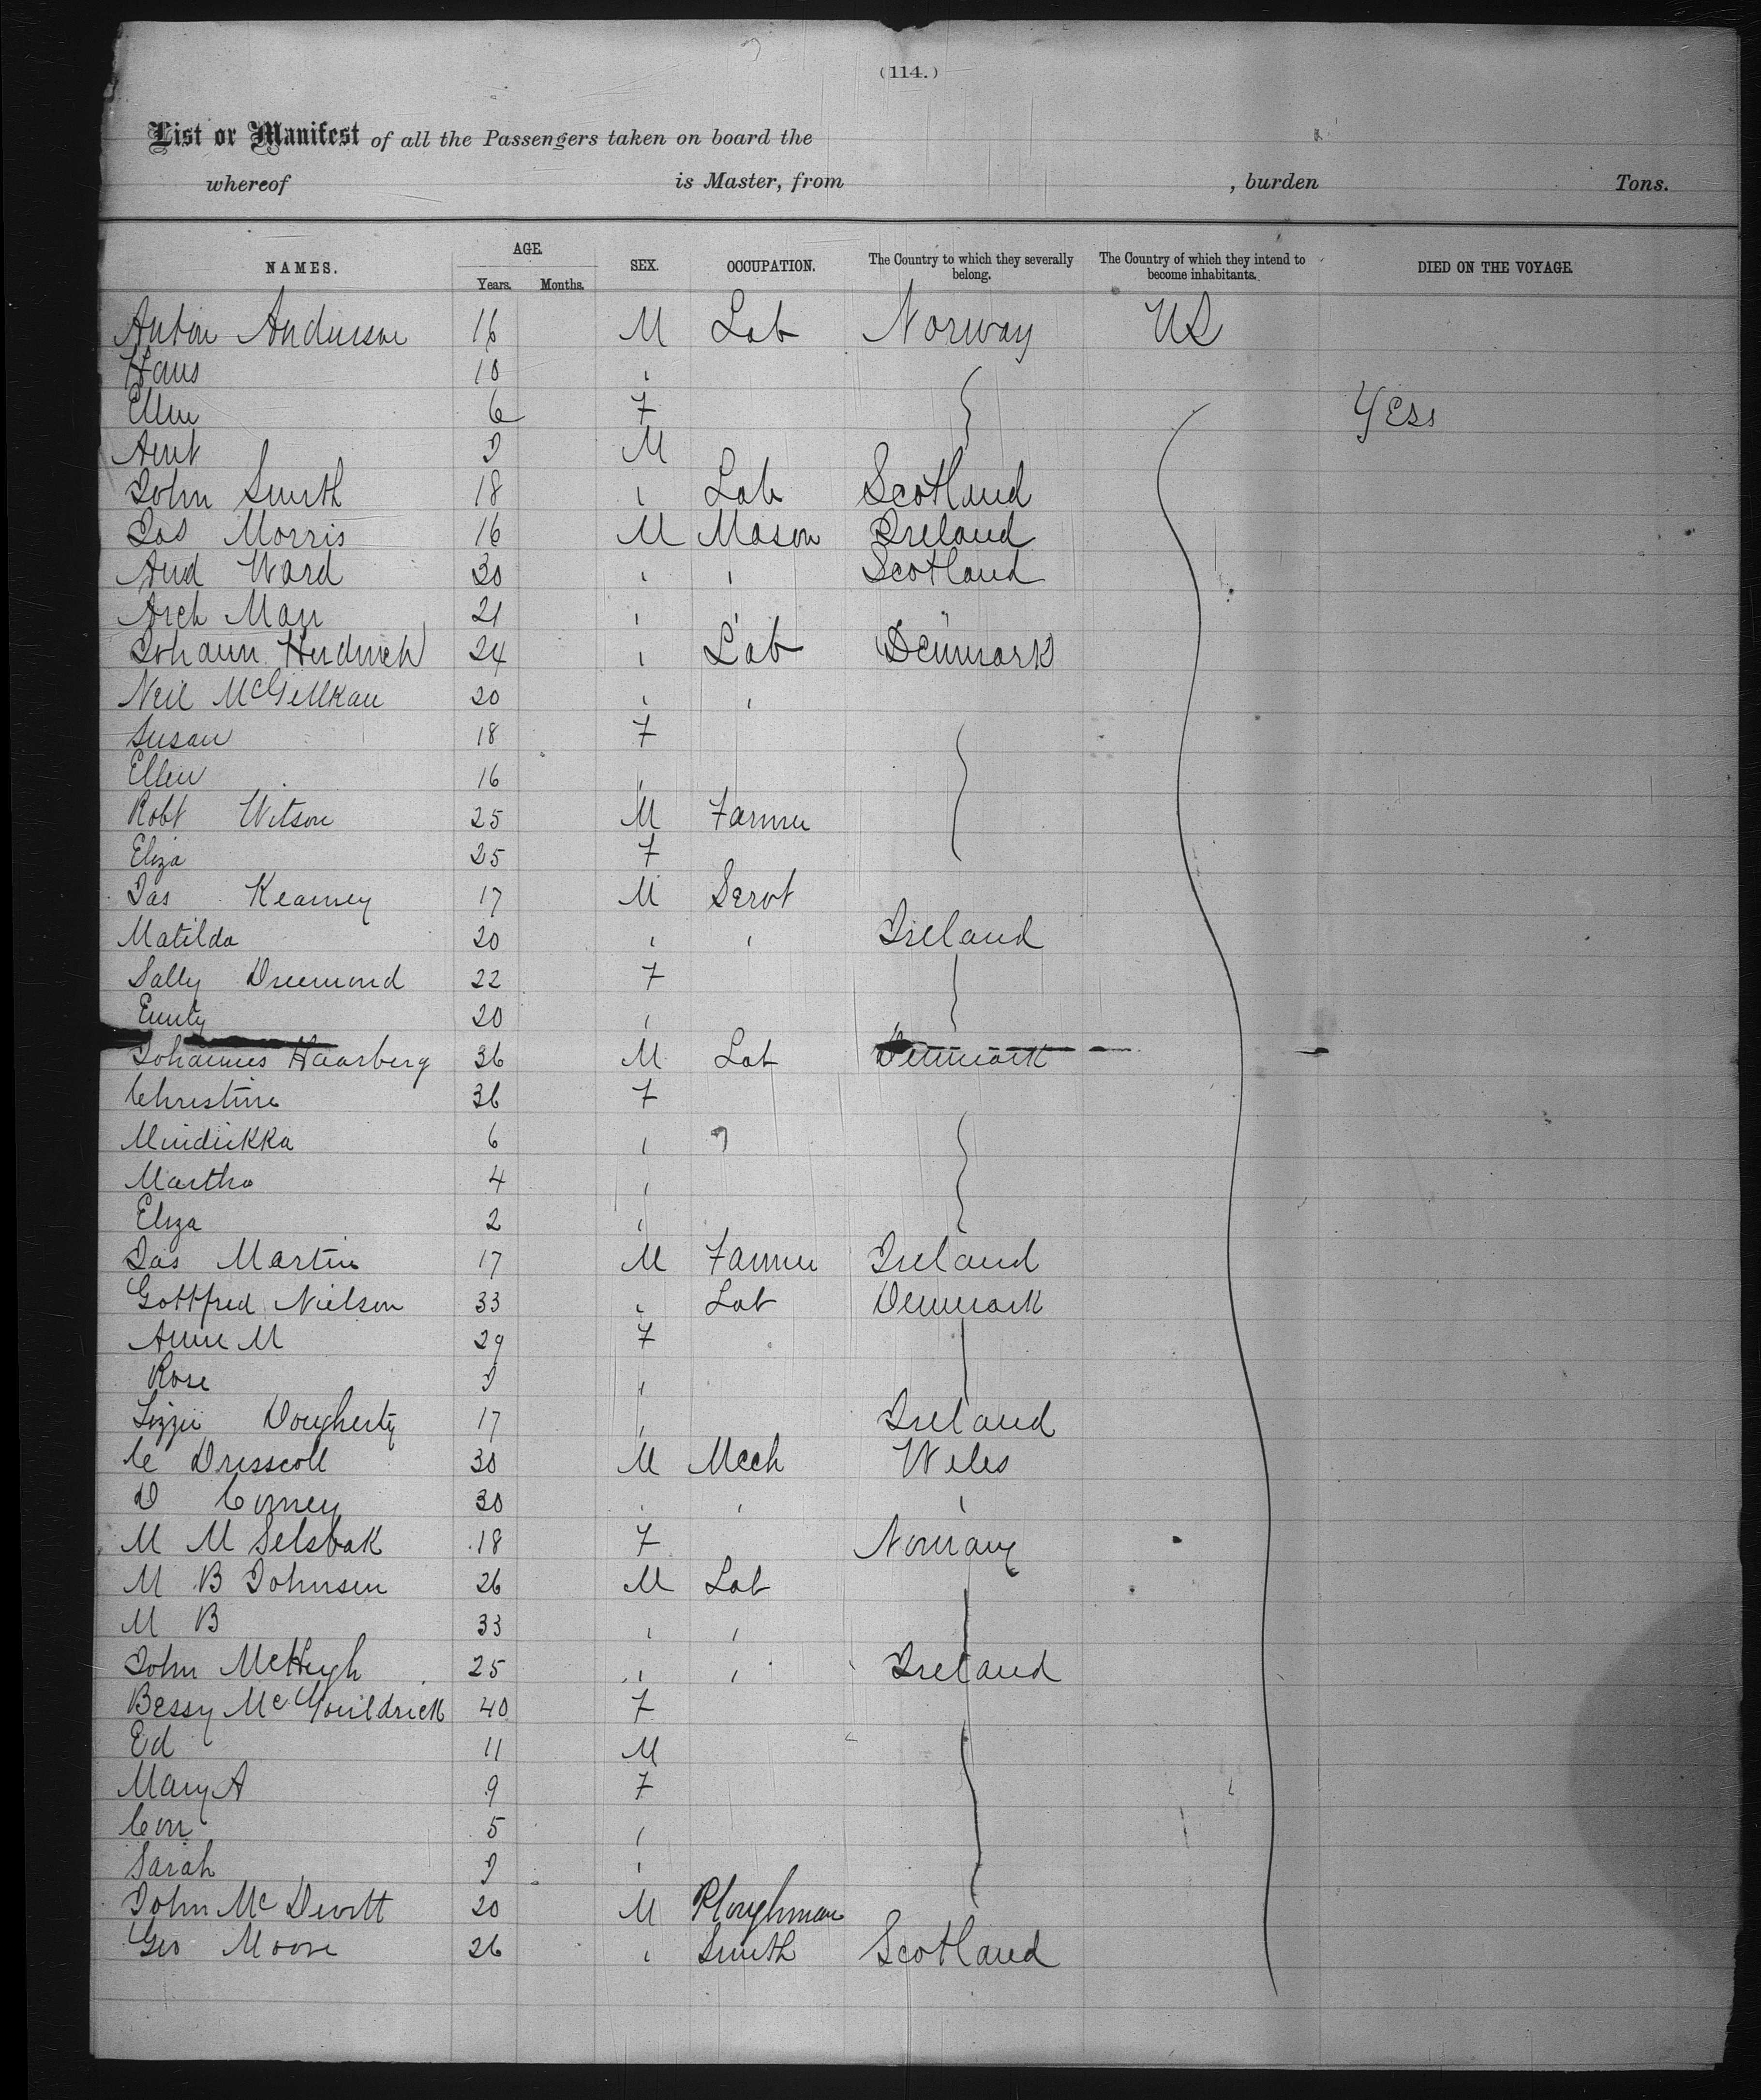 (114.)
List or Manifest of all the Passengers taken on board the
whereof is Master, from , burden Tons.
NAMES. AGE. Years. Months. SEX. OCCUPATION. The Country to which they severally belong. The Country of which they intend to become inhabitants. DIED ON THE VOYAGE.
Anton Anderson 16 M Lab Norway US
Hans 10
Ellen 6 F Yes
M
John Smith 18 Lab Scotland
Jas Morris 16 M Mason Ireland
And Ward 30 Scotland
Arch Marr 21
Johann 24 Lab Denmark
Neil 20
Susan 18 F
Ellen 16
Robt Wilson 25 M Farmer
Eliza 25 F
Jas Kearney 17 M Servt
Matilda 20 Ireland
Sally 22 F
Emily 20
Johannes Haarberg 36 M Lab Denmark
Christine 36 F
6
Martha 4
Eliza 2
Jas Martin 17 M Farmer Ireland
Gottfred Nielson 33 Lab Denmark
Anne M 29 F
Rose
Lizzie Dougherty 17 Ireland
C Drisscoll 30 M Mech Wales
D 30
M M Selsbak 18 F Norway
M B Johnsen 26 M Lab
M B 33
John McHugh 25 Ireland
Bessy 40 F
Ed 11 M
Mary A 9 F
Con 5
Sarah
John McDevitt 20 M Ploughman
Geo Moore 26 Smith Scotland